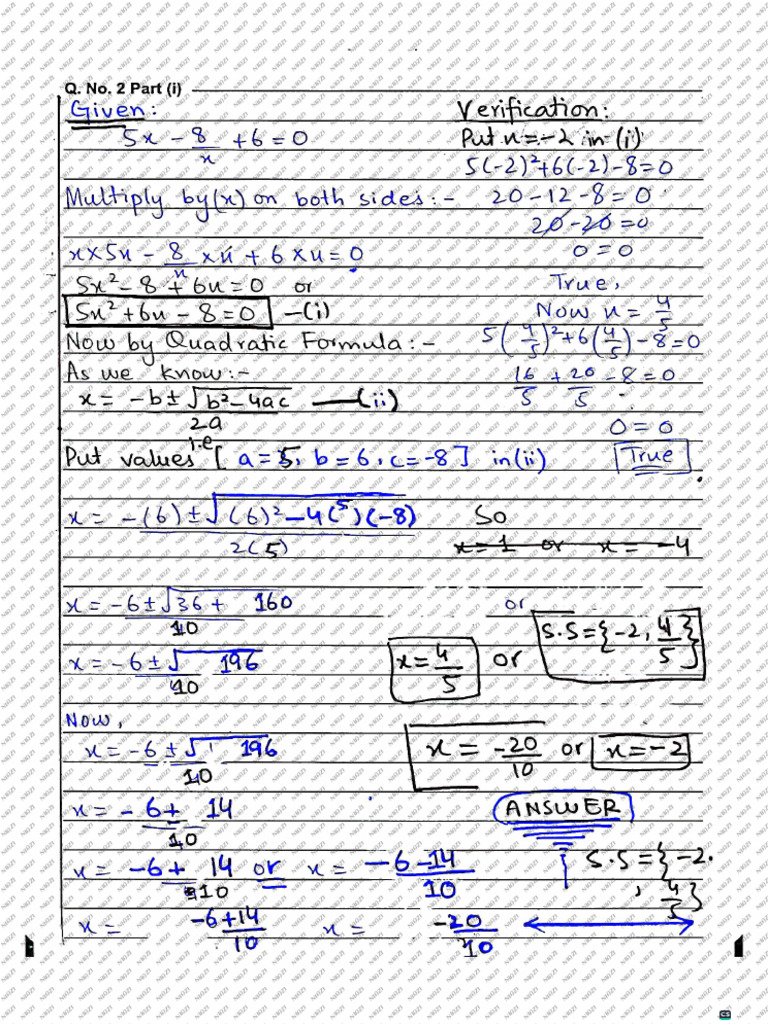 Q. No. 2 Part (i)
Given:
5x - 8/x + 6 = 0
Multiply by (x) on both sides:-
x×5x - 8/x ×x + 6×x = 0
5x² - 8 + 6x = 0 or
5x² + 6x - 8 = 0 —(i)
Now by Quadratic Formula:-
As we know:-
x = -b ± √b² - 4ac / 2a —(ii)
i.e
Put values [ a = 5, b = 6, c = -8 ] in (ii)
x = -(6) ± √(6)² - 4(5)(-8) / 2(5)
x = -6 ± √36 + 160 / 10
x = -6 ± √196 / 10
Now,
x = -6 ± √196 / 10
x = -6 ± 14 / 10
x = -6 + 14 / 10 or x = -6 - 14 / 10
x = -6 + 14 / 10 x = -20 / 10
Verification:
Put x = -2 in (i)
5(-2)² + 6(-2) - 8 = 0
20 - 12 - 8 = 0
20 - 20 = 0
0 = 0
True,
Now x = 4/5
5(4/5)² + 6(4/5) - 8 = 0
16/5 + 20/5 - 8 = 0
0 = 0
True
So
x = 1 or x = -4
or
x = 4/5 or S.S = {-2, 4/5}
x = -20/10 or x = -2
ANSWER
S.S = {-2, 4/5}
CS